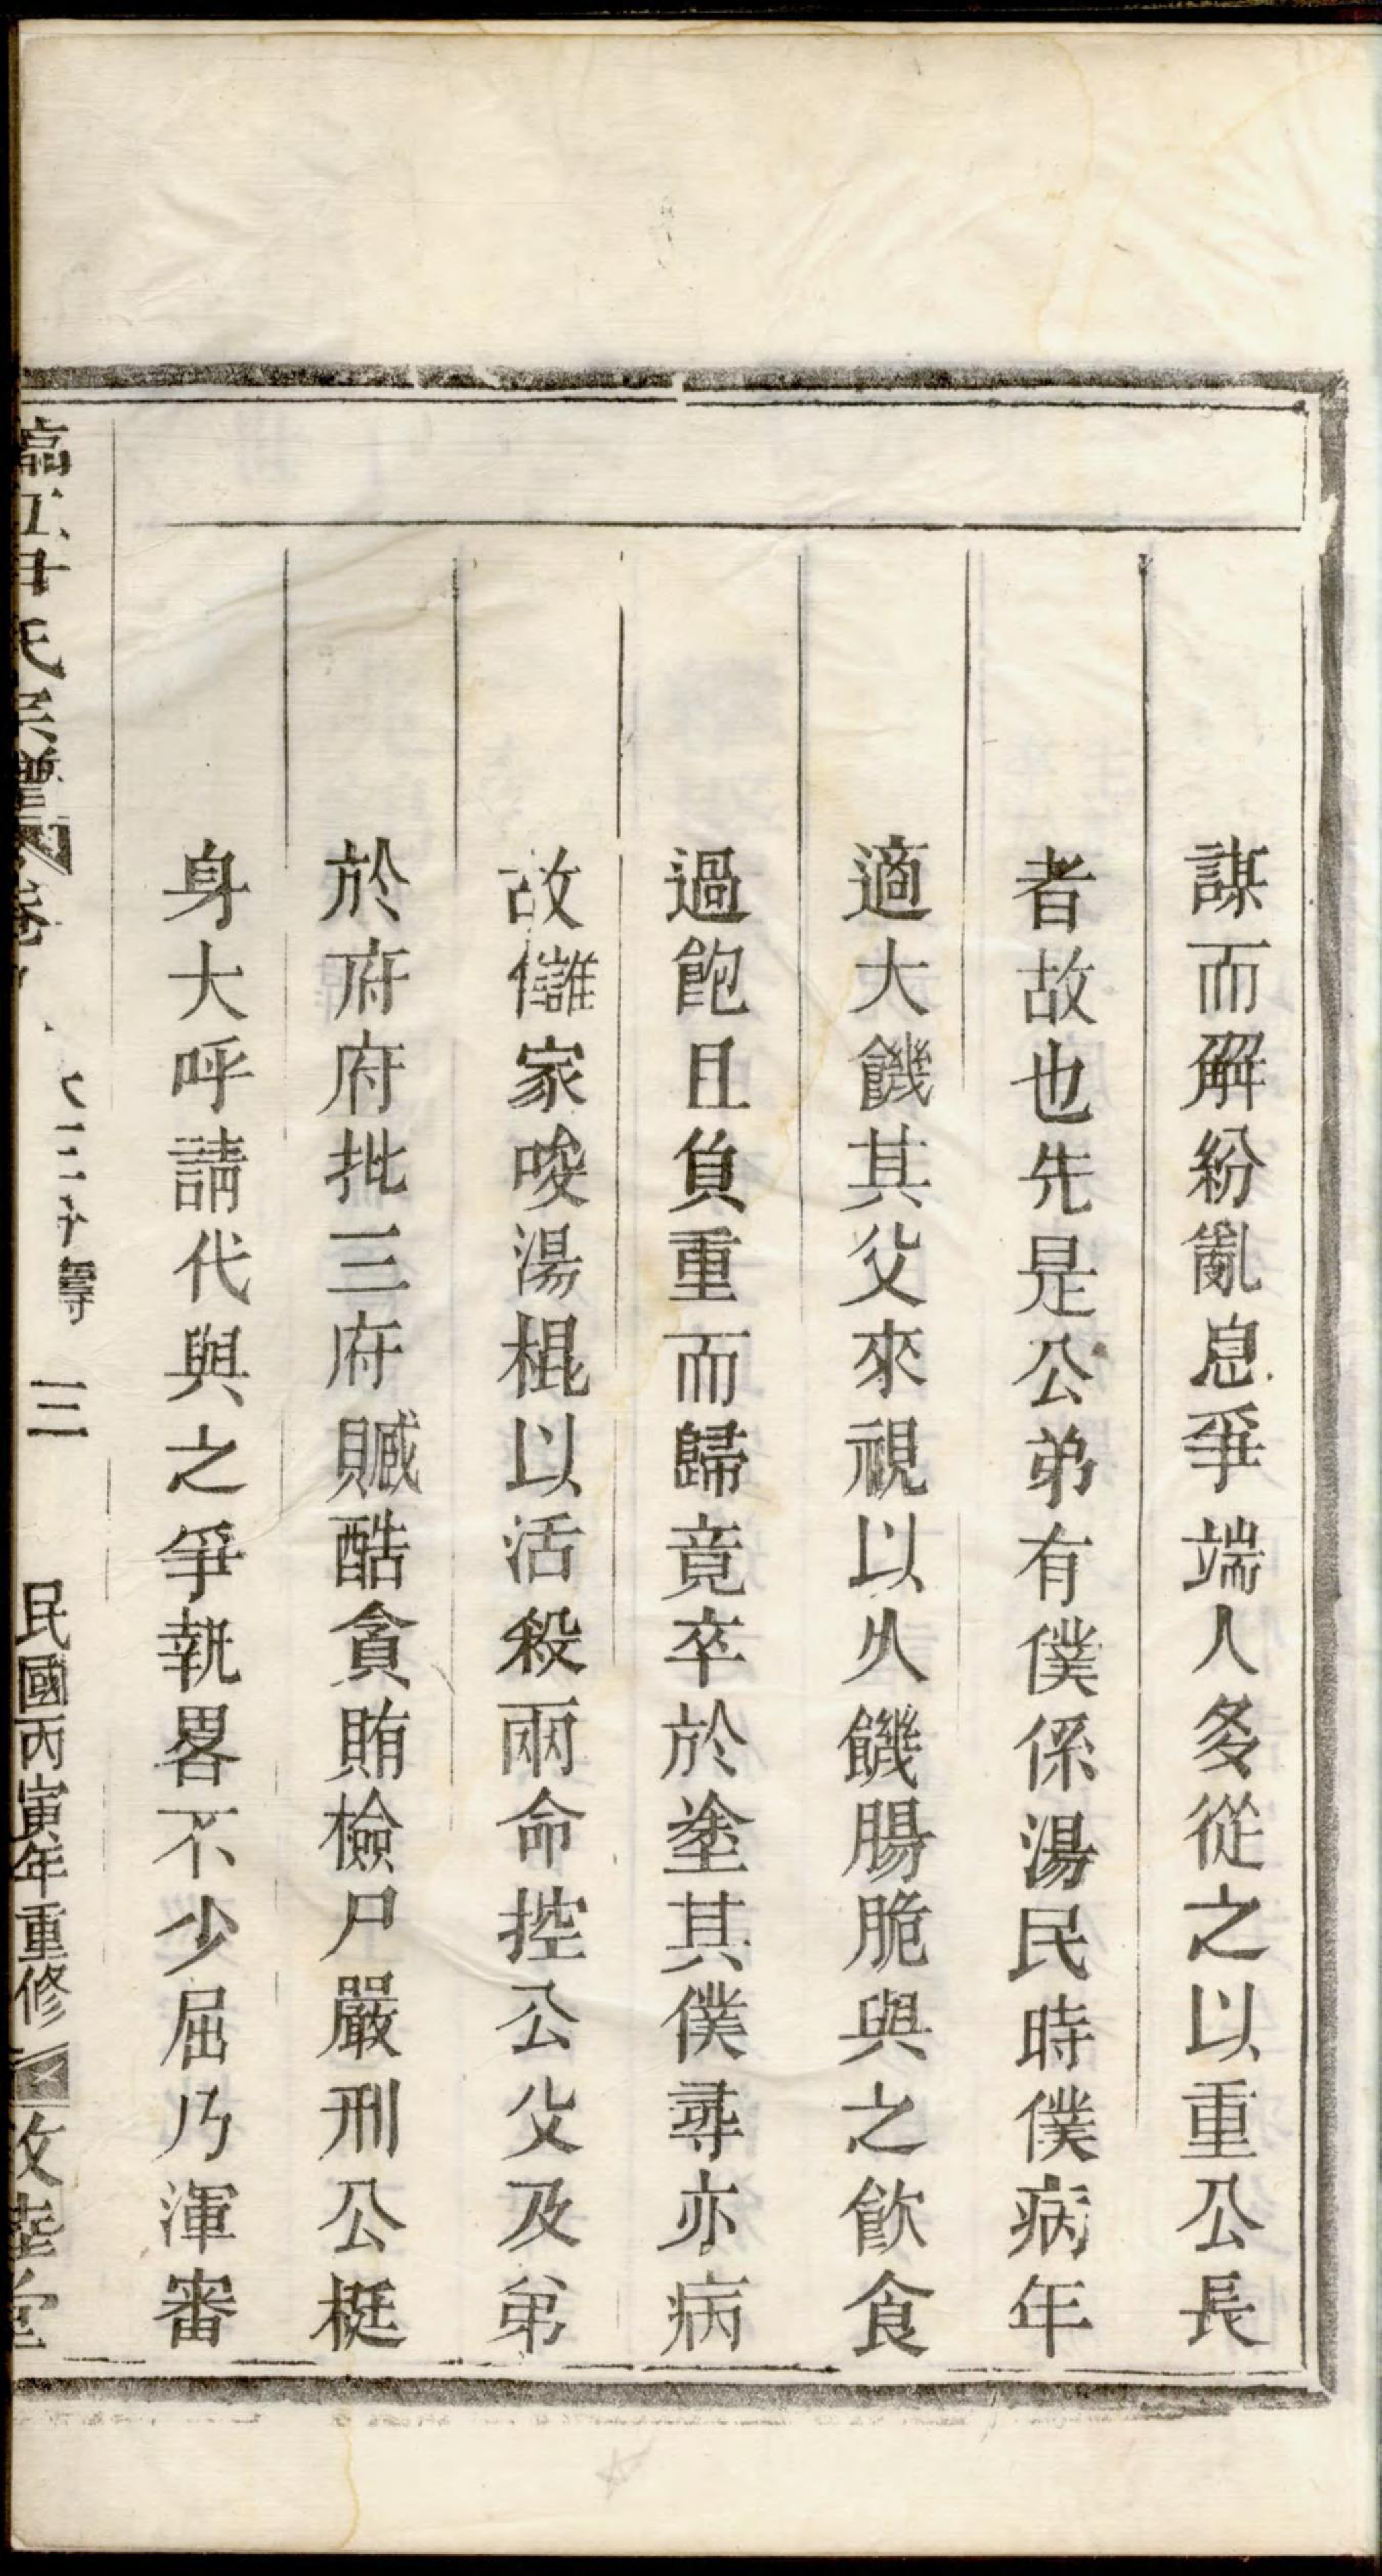 謀而解紛亂息爭端人多從之以重公長
者故也先是公弟有僕係湯民時僕病年
適大饑其父來視以久饑腸脆與之飲食
過飽且負重而歸竟卒於塗其僕尋亦病
故讎家唆湯棍以活殺兩命控公父及弟
於府府批三府贓酷貪賄檢尸嚴刑公梃
身大呼請代與之爭執畧不少屈乃渾審
氏 卷 三 民國丙寅年重修 堂